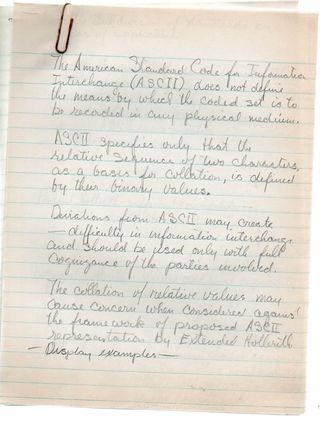 The American Standard Code for Information
Interchange (ASCII), does not define
the means by which the coded set is to
be recorded in any physical medium.
ASCII specifies only that the
relative sequence of two characters,
as a basis for collation, is defined
by their binary values.
Deviations from ASCII may create
— difficulty in information interchange
and should be used only with full
Cognizance of the parties involved.
The collation of relative values may
cause concern when considered against
the framework of proposed ASCII
representation by Extended Hollerith
— Display examples —